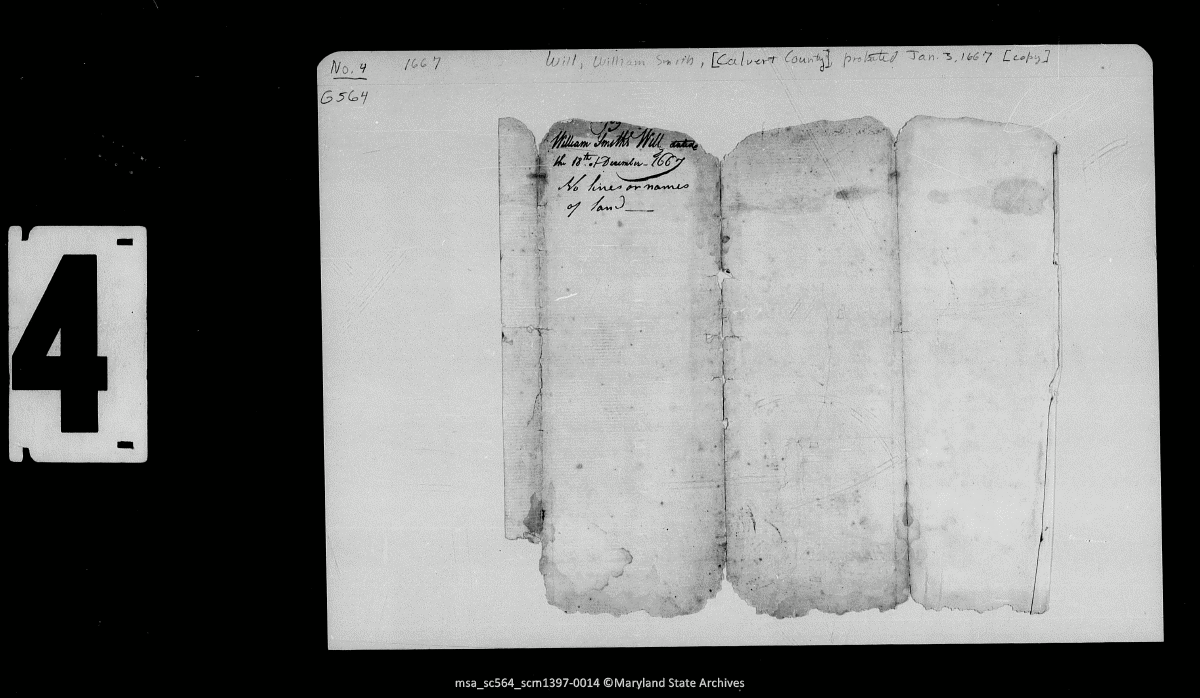 No. 4 1667 Will, William Smith, [Calvert County], probated Jan. 3, 1667 [copy]
G564
4
William Smiths Will
the 18th of December - 1667
No lines or names
of land
msa_sc564_scm1397-0014 ©Maryland State Archives